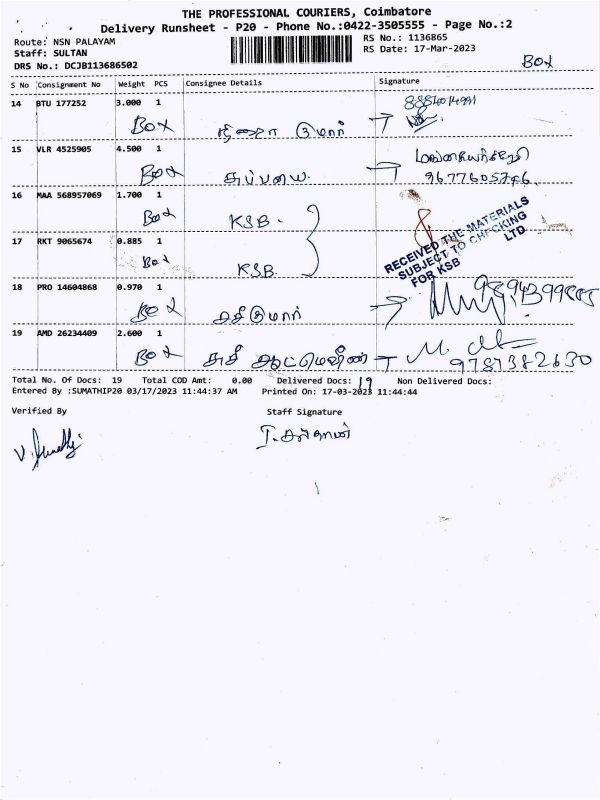 THE PROFESSIONAL COURIERS, Coimbatore
Delivery Runsheet - P20 - Phone No.:0422-3505555 - Page No.:2
Route: NSN PALAYAM
Staff: SULTAN
DRS No.: DCJB113686502
RS No.: 1136865
RS Date: 17-Mar-2023
Box
S No Consignment No Weight PCS Consignee Details Signature
14 BTU 177252 3.000 1
Box குமார்
15 VLR 4525905 4.500 1
Box சுப்பையை 9677605746
16 MAA 568957069 1.700 1
Box KSB.
RECEIVED THE MATERIALS
SUBJECT TO CHECKING
FOR KSB LTD
17 RKT 9065674 0.885 1
Box KSB.
18 PRO 14604868 0.970 1 9894399885
Box சசிகுமார்
19 AMD 26234409 2.600 1
Box சுசி ஆட்டோமெஷின் 9787382630
Total No. Of Docs: 19 Total COD Amt: 0.00 Delivered Docs: 19 Non Delivered Docs:
Entered By :SUMATHIP20 03/17/2023 11:44:37 AM Printed On: 17-03-2023 11:44:44
Verified By Staff Signature